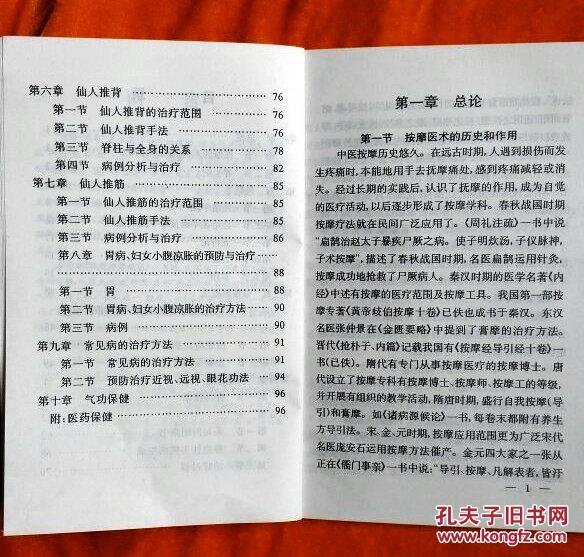 第六章 仙人推背 ………………………… 76
第一节 仙人推背的治疗范围 ………… 76
第二节 仙人推背手法 ………………… 76
第三节 脊柱与全身的关系 …………… 78
第四节 病例分析与治疗 ……………… 82
第七章 仙人推筋 ………………………… 85
第一节 仙人推筋的治疗范围 ………… 85
第二节 仙人推筋手法 ………………… 85
第三节 病例分析与治疗 ……………… 86
第八章 胃病、妇女小腹凉胀的预防与治疗……
………………………… 88
第一节 胃 ……………………………… 88
第二节 胃病、妇女小腹凉胀的治疗方法 90
第三节 病例 …………………………… 90
第九章 常见病的治疗方法 ……………… 91
第一节 常见病的治疗方法 …………… 91
第二节 预防治疗近视、远视、眼花功法 … 94
第十章 气功保健 ………………………… 96
附:医药保健 …………………………… 96
第一章 总论
第一节 按摩医术的历史和作用
中医按摩历史悠久。在远古时期,人遇到损伤而发
生疼痛时,本能地用手去抚摩痛处,感到疼痛减轻或消
失。经过长期的实践后,认识了抚摩的作用,成为自觉
的医疗活动,以后逐步形成了按摩学科。春秋战国时期
按摩疗法就在民间广泛应用了。《周礼注疏》一书中说
“扁鹊治赵太子暴疾尸厥之病。使子明炊汤,子仪脉神,
子术按摩”,描述了春秋战国时期,名医扁鹊运用针灸、
按摩成功地抢救了尸厥病人。秦汉时期的医学名著《内
经》中述有按摩的医疗范围及按摩工具。我国第一部按
摩专著《黄帝歧伯按摩十卷》已佚也成书于秦汉。东汉
名医张仲景在《金匮要略》中提到了膏摩的治疗方法。
晋代《抢朴子、内篇》记载我国有《按摩经导引经十卷》一
书(已佚)。隋代有专门从事按摩医疗的按摩博士。唐
代设立了按摩专科有按摩博士、按摩师、按摩工的等级,
并开展有组织的教学活动,隋唐时期,盛行自我按摩(导
引)和膏摩。如《诸病源候论》一书,每卷末都附有养生
方导引法。宋、金、元时期,按摩应用范围更为广泛宋代
名医庞安石运用按摩方法催产。金元四大家之一张从
正在《儒门事亲》一书中说:“导引、按摩、凡解表者,皆汗
— 1 —
孔夫子旧书网
www.kongfz.com